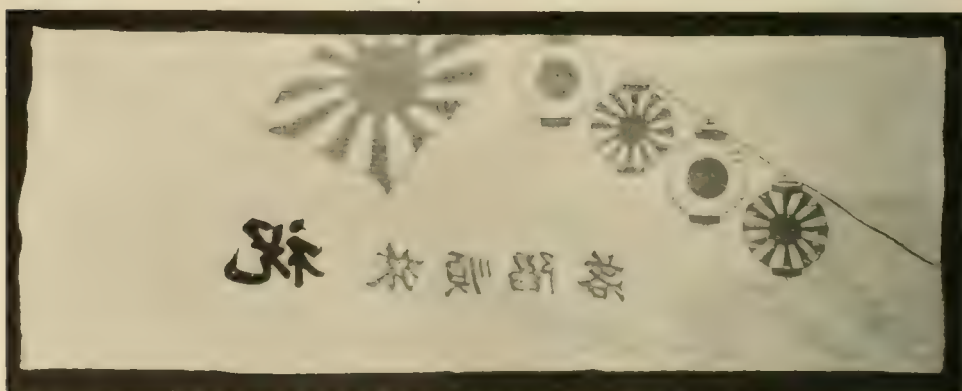 祝 旅順陷落